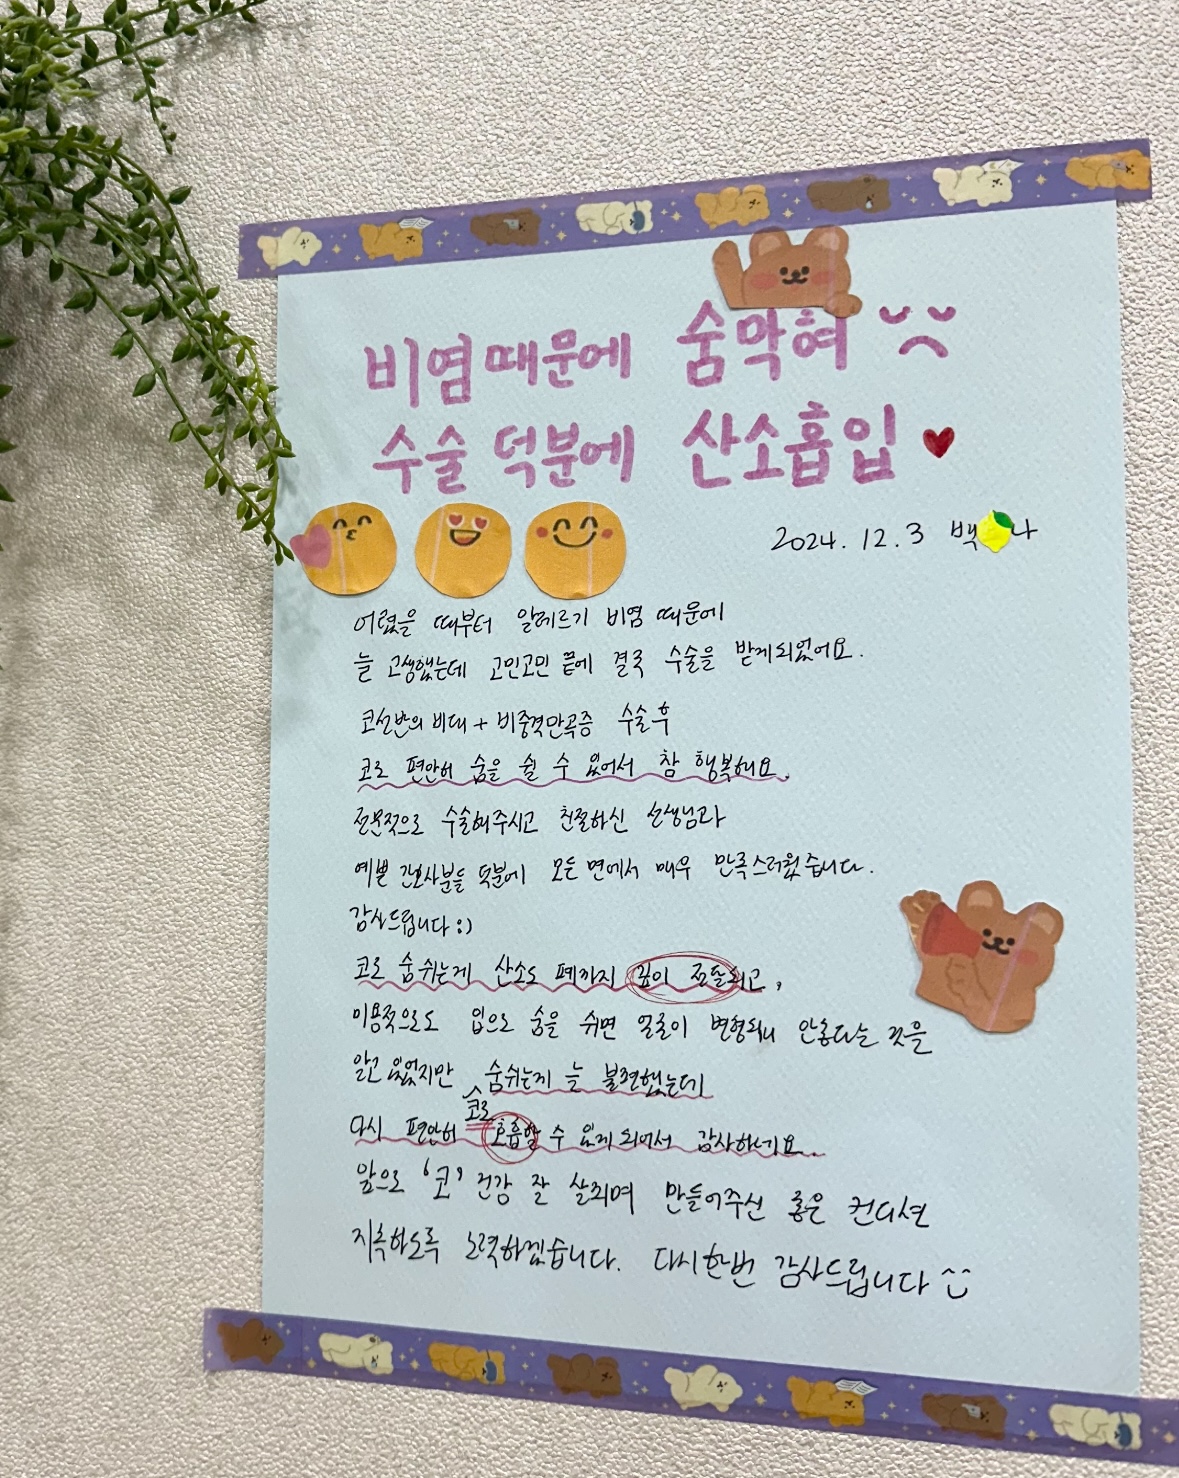 비염때문에 숨막혀
수술 덕분에 산소흡입
2024. 12. 3 백 나
어렸을 때부터 알레르기 비염 때문에
늘 고생했는데 고민고민 끝에 결국 수술을 받게되었어요.
코선반의 비대 + 비중격만곡증 수술 후
코로 편안히 숨을 쉴 수 있어서 참 행복해요.
전문적으로 수술해주시고 친절하신 선생님과
예쁜 간호사분들 덕분에 모든 면에서 매우 만족스러웠습니다.
감사드립니다 :)
코로 숨쉬는게 산소도 폐까지 깊이 전달되고,
미용적으로도 입으로 숨을 쉬면 얼굴이 변형되니 안좋다는 것을
알고 있었지만 숨쉬는게 늘 불편했는데
다시 편안히 코로 호흡할 수 있게 되어서 감사하네요.
앞으로 '코' 건강 잘 살피며 만들어주신 좋은 컨디션
지속하도록 노력하겠습니다. 다시한번 감사드립니다